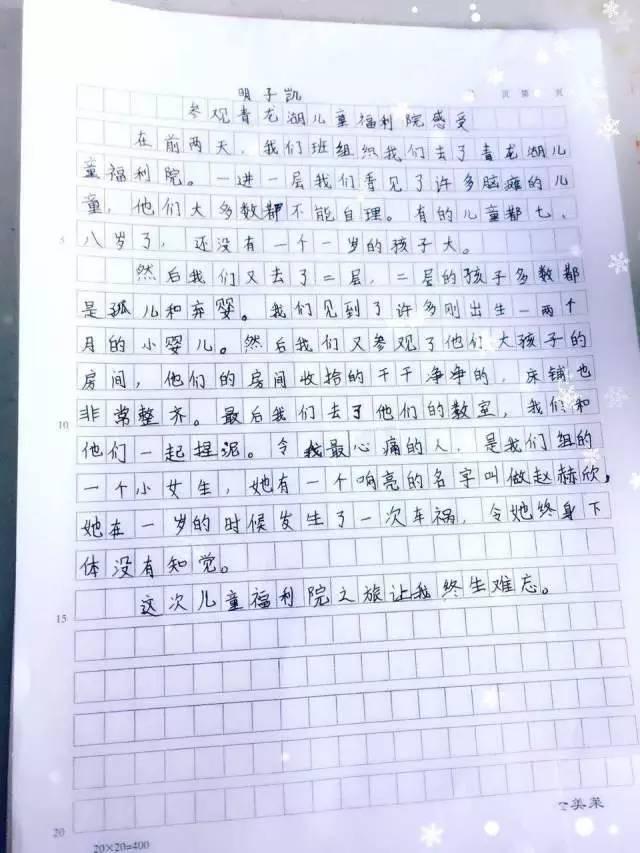 明子凯
页 第 页
参观青龙湖儿童福利院感受
在前两天，我们班组织我们去了青龙湖儿
童福利院。一进一层我们看见了许多脑瘫的儿
童，他们大多数都不能自理。有的儿童都七、
5 八岁了，还没有一个一岁的孩子大。
然后我们又去了二层，二层的孩子多数都
是孤儿和弃婴。我们见到了许多刚出生一两个
月的小婴儿。然后我们又参观了他们大孩子的
房间，他们的房间收拾的干干净净的，床铺也
10 非常整齐。最后我们去了他们的教室，我们和
他们一起捏泥。令我最心痛的人，是我们组的
一个小女生，她有一个响亮的名字叫做赵赫欣，
她在一岁的时候发生了一次车祸，令她终身下
体没有知觉。
15 这次儿童福利院之旅让我终生难忘。
20
20×20=400
美莱